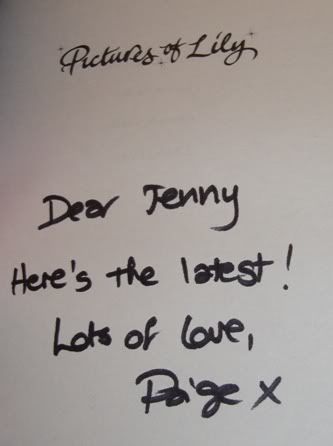 Pictures of Lily
Dear Jenny
Here's the latest!
Lots of love,
Paige X